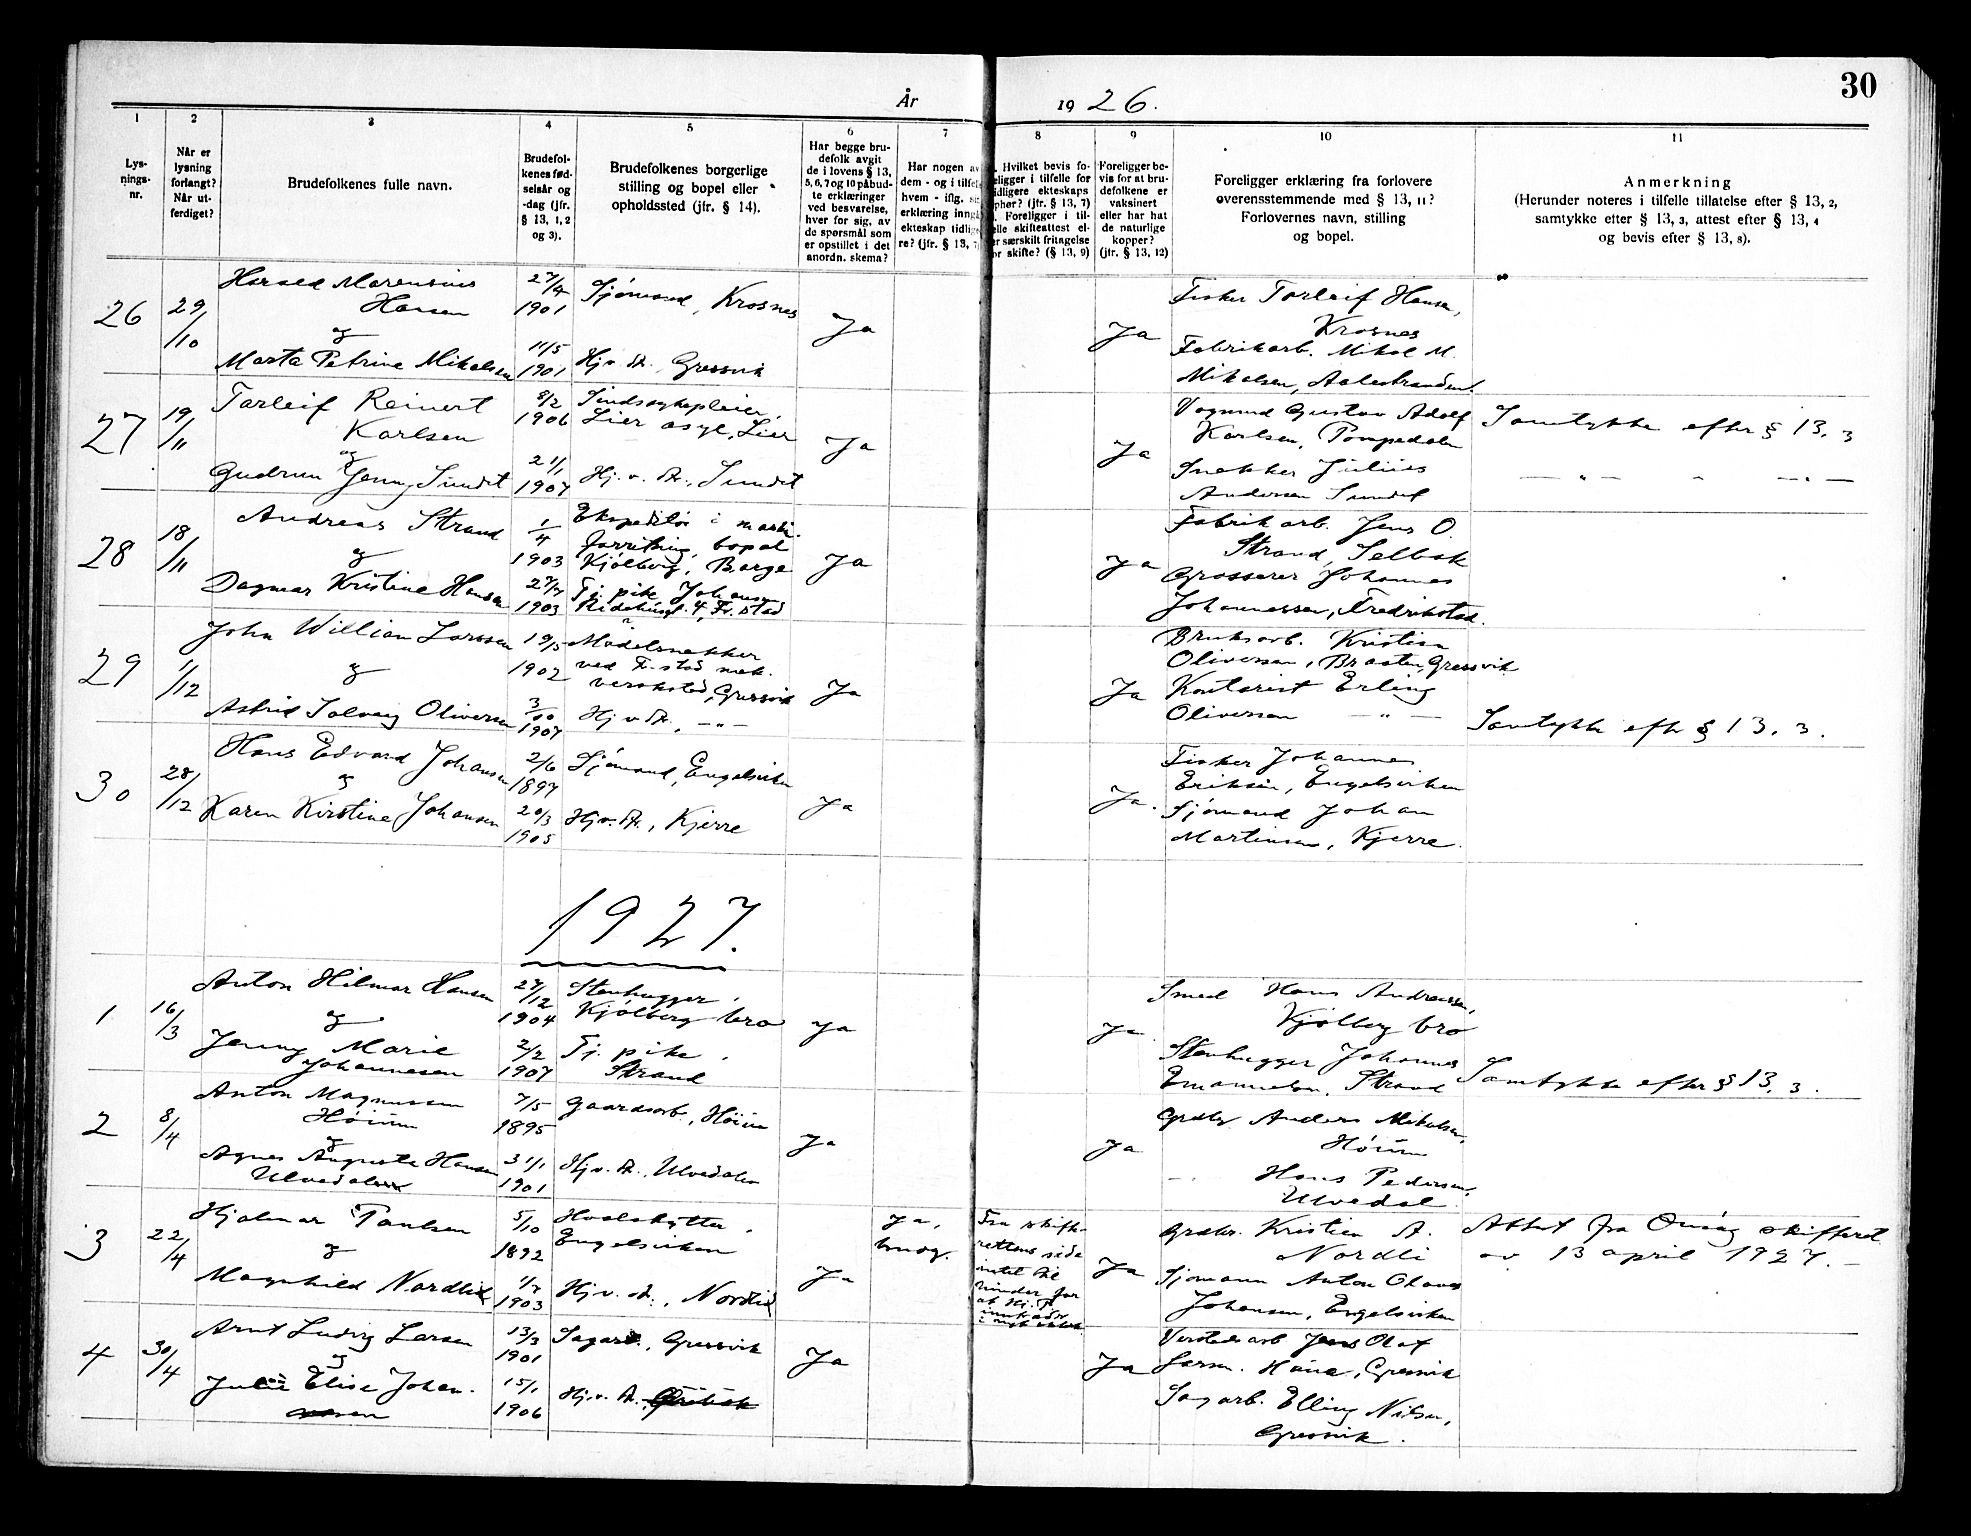 30
År 1926.
1 2 3 4 5 6 7 8 9 10 11
Lys-
nings-
nr.
Når er
lysning
forlangt?
Når ut-
ferdiget?
Brudefolkenes fulle navn.
Brudefol-
kenes fød-
selsår og
-dag (jfr.
§ 13, 1, 2
og 3).
Brudefolkenes borgerlige
stilling og bopel eller
opholdssted (jfr. § 14).
Har begge bru-
defolk avgit
de i lovens § 13,
5, 6, 7 og 10 påbud-
te erklæringer
ved besvarelse,
hver for sig, av
de spørsmål som
er opstillet i det
anordn. skema?
Har nogen av
dem - og i tilfelle
hvem - iflg.
erklæring inngå
ekteskap tidlige
re? (jfr. § 13,
Hvilket bevis fo-
eligger i tilfelle for
idligere ekteskaps
phør? (jfr. § 13, 7)
Foreligger i til-
elle skifteattest el-
er særskilt fritagelse
or skifte? (§ 13, 9)
Foreligger be-
vis for at bru-
defolkene er
vaksinert
eller har hat
de naturlige
kopper?
(jfr. § 13, 12)
Foreligger erklæring fra forlovere
overensstemmende med § 13, 11?
Forlovernes navn, stilling
og bopel.
Anmerkning
(Herunder noteres i tilfelle tillatelse efter § 13, 2,
samtykke efter § 13, 3, attest efter § 13, 4
og bevis efter § 13, 8).
26
29/10
Harald Marensius
Hansen
og
Marta Petrine Mikalsen
27/4
1901
11/5
1901
Sjømand, Krosnes
Hj.v. st., Gressvik
Ja
Ja
Fisker Torleif Hansen,
Krosnes
Fabrikarb. Mikal M.
Mikalsen, Aalestranden.
27
19/11
Torleif Reinert
Karlsen
og
Gudrun Jenny Sundet
8/2
1906
21/1
1907
Sindssykepleier,
Lier asyl, Lier
Hj. v. st., Sundet
Ja
Ja
Vognmand Gustav Adolf
Karlsen, Pompedalen
Snekker Julius
Andersen Sundet
Samtykke efter § 13, 3
— „ — „ — „ —
28
18/11
Andreas Strand
og
Dagmar Kristine Hansen
1/4
1903
1903
Ekspeditør i
forretning, bopal
Kjølberg, Borge
Tj. pike
4, Fr.stad
Ja
Ja
Fabrikarb. Jens O.
Strand, Selbak
Grosserer Johannes
Johannessen, Fredrikstad.
29
1/12
John William Larssen
og
Astrid Solveig Oliversen
19/5
1902
3/10
1907
Modelsnekker
ved F.stad mek.
verksted, Gressvik
Hj v st., — „ —
Ja
Ja
Bruksarb. Kristian
Oliversen, Braaten, Gressvik
Kontorist Erling
Oliversen — „ —
Samtykke eft § 13, 3.
30
28/12
Hans Edvard Johansen
og
Karen Kirstine Johansen
2/6
1897
20/3
1905
Sjømand, Engelsviken
Hj.v. st., Kjerre
Ja
Ja.
Fisker Johannes
Eriksen, Engelsviken
Sjømand Johan
Martinsen, Kjerre.
1927.
1
16/3
Anton Hilmar Hansen
og
Jenny Marie
Johannesen
27/12
1904
2/2
1907
Stenhugger,
Kjølberg bro
Tj. pike,
Strand
Ja
Ja.
Smed Hans Andreassen,
Kjølberg bro
Stenhugger Johannes
Emanuelsen, Strand
Samtykke efter § 13, 3.
2
8/4
Anton Magnussen
Høium
og
Agnes Augusta Hansen
Ulvedalen
7/5
1895
31/1
1901
Gaardsarb., Høium
Hj.v. st., Ulvedalen
Ja
Ja
Grdbr. Anders Mikalsen,
Høium
— Hans Pedersen,
Ulvedal.
3
22/4
Hjalmar Paulsen
og
Magnhild Nordlid
5/10
1892
1903
Hvalskytter,
Engelsviken
Hj v. st., Nordlid
Ja
Ja,
brudg.
Fra skifte-
rettens side
intet til
hinder for
at
Ja
Grdbr. Kristian A.
Nordli
Sjømann Anton Olavus
Johansen, Engelsviken
Attest fra Onsøy skifteret
av 13 april 1927. —
4
30/4
Arnt Ludvig Larsen
og
Julie Elise Johan.
13/3
1901
15/1
1906
Sagarb., Gressvik
Hj.v. st.
Ja
Ja
Verkstedarb Jens Olaf
Larsen. Haue, Gressvik
Sagarb. Elling Nilsen,
Gressvik.